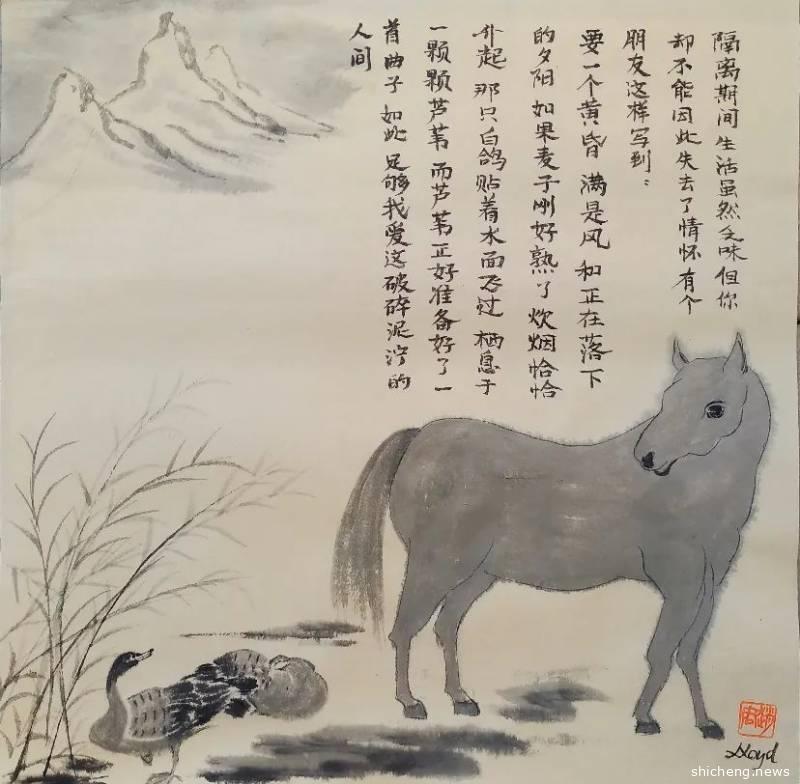 隔离期间生活虽然乏味但你
却不能因此失去了情怀 有个
朋友这样写到：
要一个黄昏 满是风 和正在落下
的夕阳 如果麦子刚好熟了 炊烟恰恰
升起 那只白鸽贴着水面飞过 栖息于
一颗颗芦苇 而芦苇正好准备好了一
首曲子 如此 足够我爱这破碎泥泞的
人间
Lloyd
shicheng.news